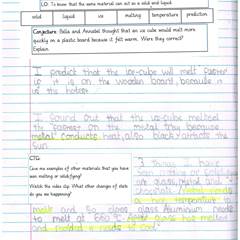 LO: To know that the same material can act as a solid and liquid.
solid liquid ice melting temperature prediction
Conjecture: Bella and Annabel thought that an ice cube would melt more
quickly on a plastic board because it felt warm. Were they correct?
Explain.
I predict that the ice-cube will melt faster
if it is on the wooden board because it
is the hottest
I found out that the ice-cube melted
the fastest on the metal tray because
metal conducts heat, also black attracts the
sun.
CTG
Give me examples of other materials that you have
seen melting or solidifying?
Watch the video clip. What other changes of state
do you see happening?
3 things I have
seen melting or solidifying
are glass, metal and
chocolate. Metal needs
a high temperature to
melt and so does glass. Aluminium needs
to melt at 660°C. After glass has melted
and
needs to cool